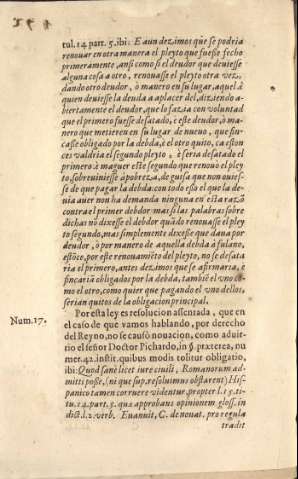 tul. 14. part. 5. ibi: E aun dezimos que se podria
renouar en otra manera el pleyto que fuesse fecho
primeramente, ansi como si el deudor que deuiesse
alguna cosa a otro, renouasse el pleyto otra vez,
dando otro deudor, ò manero en su lugar, aquel à
quien deuiesse la deuda a aplacer del, diziendo a-
biertamente el deudor, que lo fazia con voluntad
que el primero fuesse desatado, è este deudor, ò ma-
nero que metieren en su lugar de nueuo, que fin-
casse obligado por la debda, è el otro quito, ca eston
ces valdria el segundo pleyto, è seria desatado el
primero: è maguer este segundo que renouò el pley
to, sobreuiniesse à pobreza, de guisa que non ouies-
se de que pagar la debda, con todo esso el que la de-
uia auer non ha demanda ninguna en esta razõ
contra el primer debdor: mas si las palabras sobre
dichas nõ dixesse el debdor quãdo renouasse el pley
to segundo, mas simplemente dixesse que daua por
deudor, ò por manero de aquella debda à fulano,
estõce, por este renouamiẽto del pleyto, no se desata
ria el primero, antes dezimos que se afirmaria, e
fincariã obligados por la debda, tambiẽ el vno co-
mo el otro, como quier que pagando el vno dellos,
serian quitos de la obligacion principal.
Num. 17. Por esta ley es resolucion assentada, que en
el caso de que vamos hablando, por derecho
del Reyno, no se causò nouacion, como aduir-
tio el señor Doctor Pichardo, in §. præterea, nu
mer. 42. instit. quibus modis tollitur obligatio,
ibi: Quod sanè licet iure ciuili, Romanorum ad-
mitti posse, (ni que sup. resoluimus obstarent) His-
panico tamen corruere videntur, propter l. 15. ti-
tu. 14. part. 5. quæ approbans opinionem gloss. in
dict. l. 2. verb. Euanuit, C. de nouat. pro regula
tradit